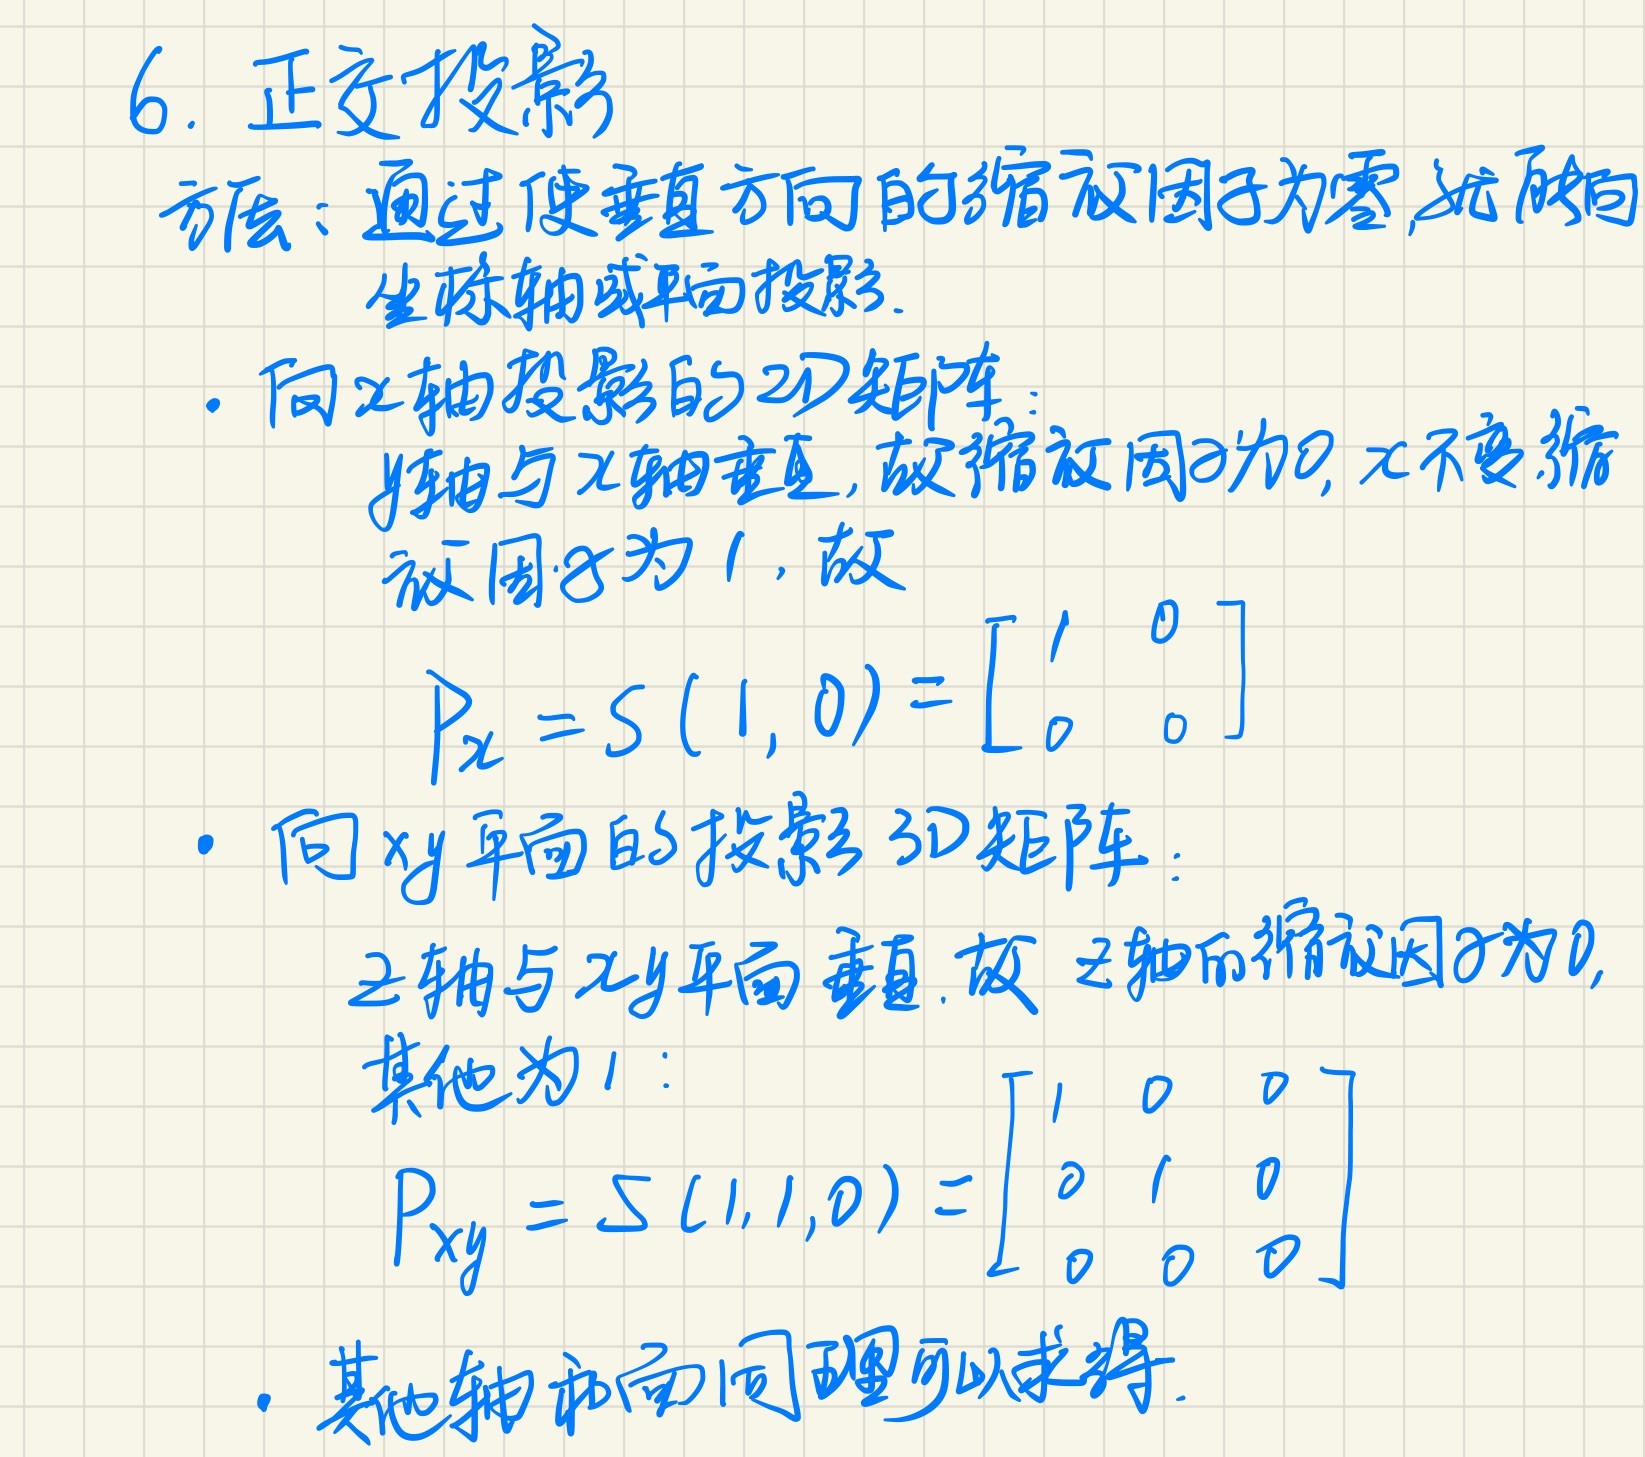 6. 正交投影
方法：通过使垂直方向的缩放因子为零,就能向
坐标轴或平面投影.
· 向x轴投影的2D矩阵：
y轴与x轴垂直,故缩放因子为0, x不变,缩
放因子为1,故
Px = S(1,0) = [1 0
0 0]
· 向xy平面的投影3D矩阵：
z轴与xy平面垂直.故 z轴的缩放因子为0,
其他为1：
Pxy = S(1,1,0) = [1 0 0
0 1 0
0 0 0]
· 其他轴和面同理可以求得.